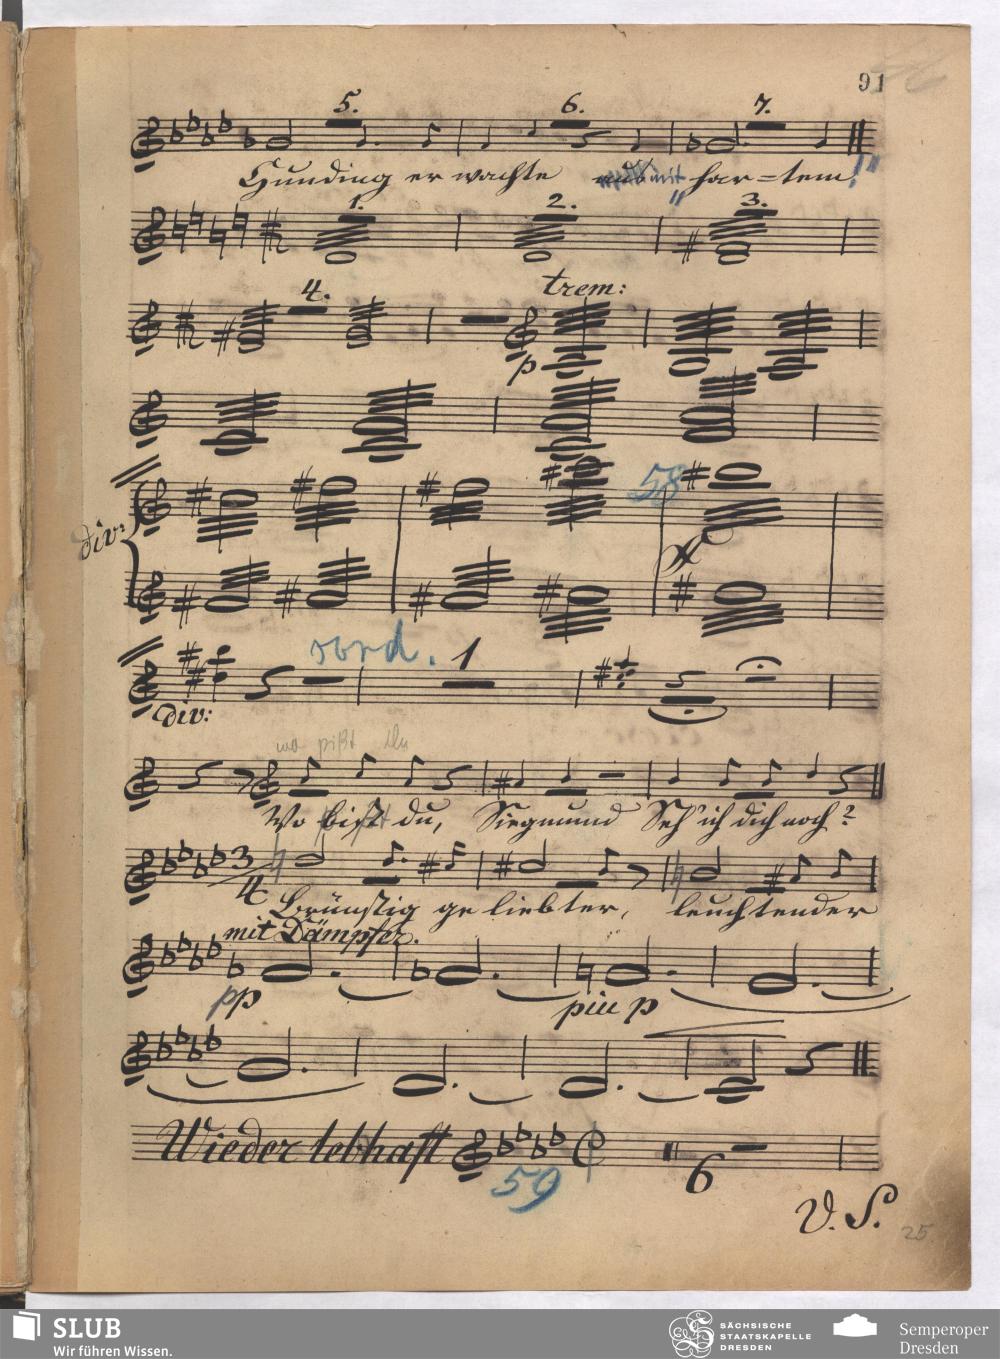 91
5. 6. 7.
Hunding er wachte mit har=tem!
1. 2. 3.
4. trem:
p
58
div:
ff
sord. 1
div:
wo bißt Du
Wo bist du, Siegmund Seh' ich dich noch?
3
4
Brünstig ge liebter, leuchtender
mit Dämpfer.
pp piu p
Wieder lebhaft
59 6
V. S.
25
SLUB
Wir führen Wissen.
SÄCHSISCHE
STAATSKAPELLE
DRESDEN
Semperoper
Dresden